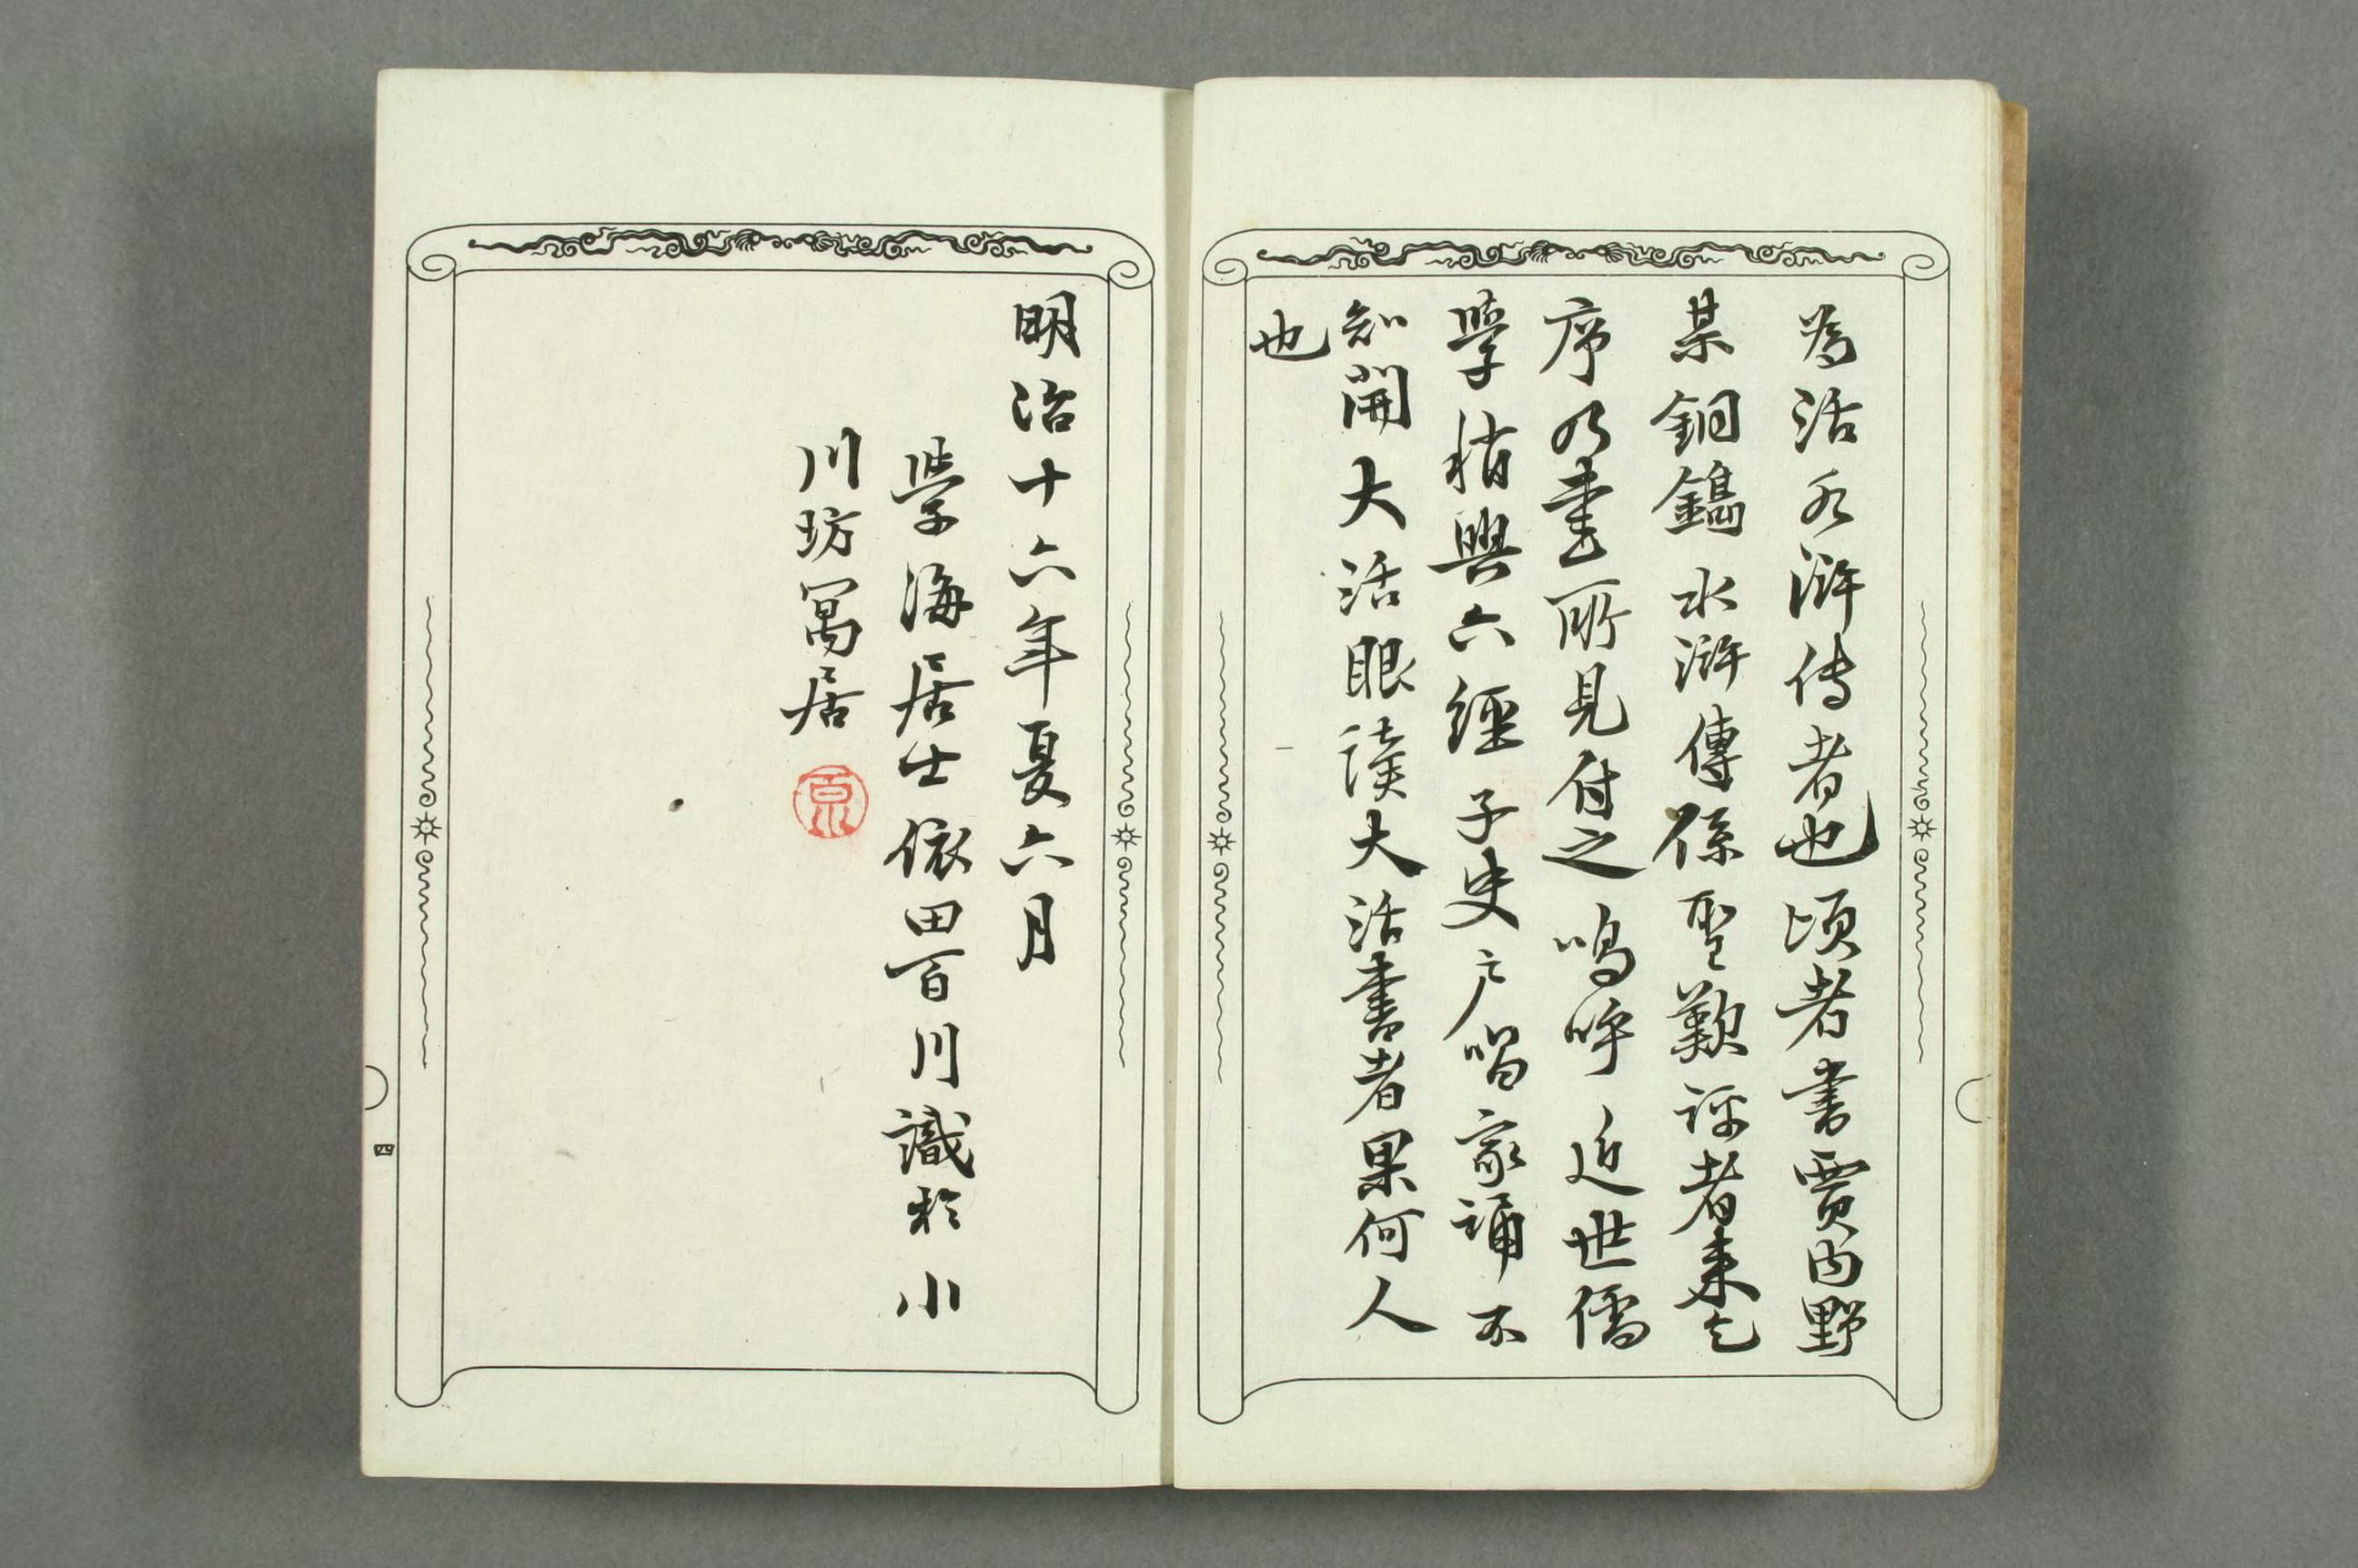 為活水滸传者也頃者書賈内野
某銅鐫水滸傳係聖歎評者来乞
序乃書所見付之嗚呼近世儒
學稍興六經子史戶唱家誦不
知開大活眼読大活書者果何人
也
明治十六年夏六月
學海居士依田百川識於小
川坊寓居
百川
四